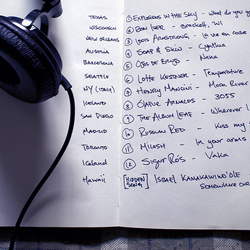 TEXAS ① EXPLOSIONS IN THE SKY - What do you go
WISCONSIN ② BON IVER - Crackoff, WI
NEW ORLEANS ③ LOUIS ARMSTRONG - La vie en rose
AUSTRIA ④ SOAP & SKIN - Cynthia
BARCELONA ⑤ OJOS DE BRUJO - Nana
SEATTLE ⑥ LOTTE KESTNER - Temperature
NY (ITALY) ⑦ HENRY MANCINI - MOON RIVER
ICELAND ⑧ ÓLAFUR ARNALDS - 3055
SAN DIEGO ⑨ THE ALBUM LEAF - Wherever
MADRID ⑩ RUSSIAN RED - Kiss my
TORONTO ⑪ MILOSH - In your arms
ICELAND ⑫ SIGUR RÓS - Vaka
HAWAII [HIDDEN SONG] ISRAEL KAMAKAWIWO'OLE
SOMEWHERE OVER